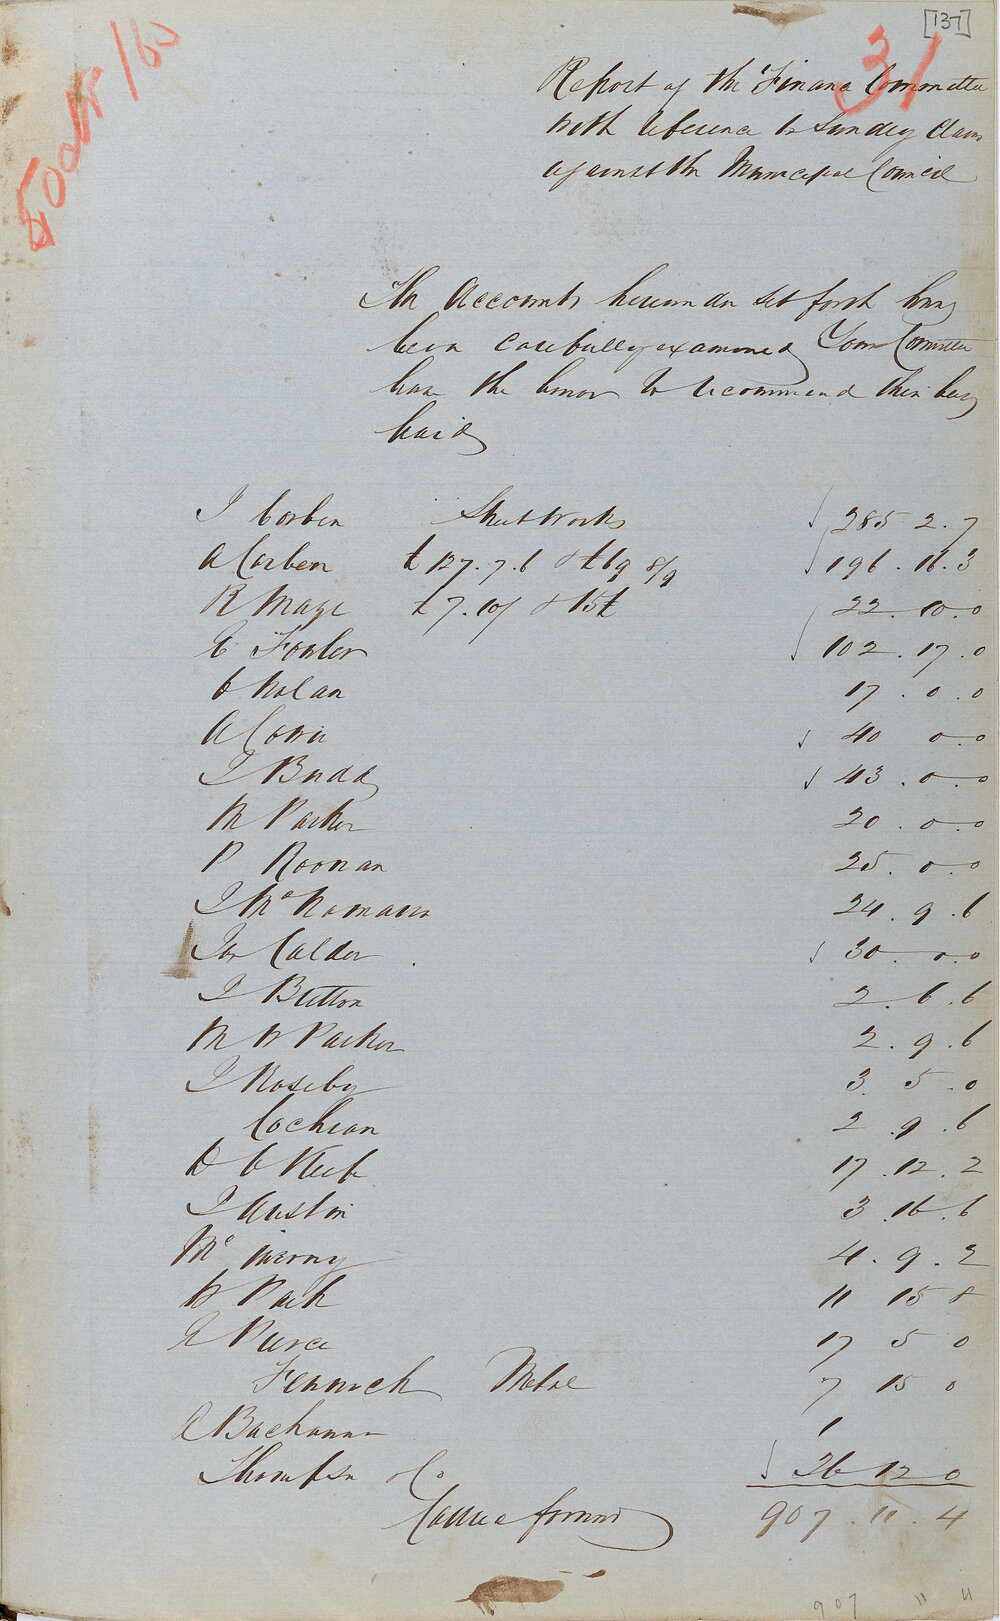 [137]
31
50 Octr /60
Report of the Finance Committee
with reference to Sundry Claims
against the Municipal Council
The Accounts hereunder set forth having
been carefully examined Your Committee
have the honor to recommend their being
paid
J Corben Street Works 285 . 2 . 7
A Corben £ 127 . 7 . 6 & £69 8/9 196 . 16 . 3
R Mage £7 . 10/ & 15£ 22 . 10 . 0
E Fowler 102 . 17 . 0
C Nolan 17 . 0 . 0
A Cowie 40 0 . 0
J Budd 43 . 0 . 0
M Parker 20 . 0 . 0
P Roonan 25 . 0 . 0
J McNamara 24 . 9 . 6
Jas Calder 30 . 0 . 0
J Button 2 . 6 . 6
M W Parker 2 . 9 . 6
J Roseby 3 . 5 . 0
Cochran 2 . 9 . 6
17 . 12 . 2
J Austin 3 . 16 . 6
4 . 9 . 2
W Pack 11 15 8
E Pierce 17 5 0
Fenwick Metal 7 15 0
A Buchanan 1
Thompson & Co 26 12 0
Carried forward 907 . 11 . 4
907 11 4